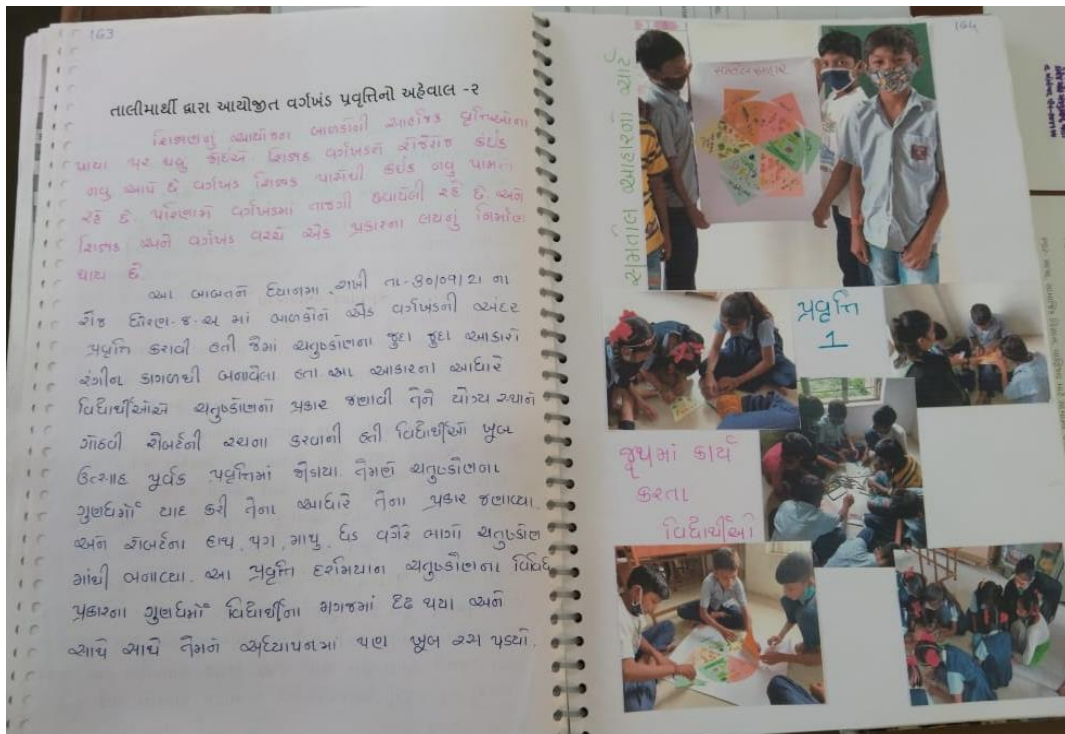 163
તાલીમાર્થી દ્વારા આયોજીત વર્ગખંડ પ્રવૃત્તિનો અહેવાલ -૨
શિક્ષણનું આયોજન બાળકોની સાહજિક વૃત્તિઓના
પાયા પર થવુ જોઇએ શિક્ષક વર્ગખંડને રોજેરોજ કંઇક
નવુ આપે છે વર્ગખંડ શિક્ષક પાસેથી કંઇક નવુ પામતા
રહે છે. પરિણામે વર્ગખંડમાં તાજગી છવાયેલી રહે છે. અને
શિક્ષક અને વર્ગખંડ વચ્ચે એક પ્રકારના લયનું નિર્માણ
થાય છે.
આ બાબતને ધ્યાનમાં રાખી તા-30/09/21 ના
રોજ ધોરણ-8-અ માં બાળકોને એક વર્ગખંડની અંદર
પ્રવૃત્તિ કરાવી હતી જેમાં ચતુષ્કોણના જુદા જુદા આકારો
રંગીન કાગળથી બનાવેલા હતા. આ આકારના આધારે
વિદ્યાર્થીઓએ ચતુષ્કોણનો પ્રકાર જણાવી તેને યોગ્ય સ્થાને
ગોઠવી રોબર્ટની રચના કરવાની હતી વિદ્યાર્થીઓ ખૂબ
ઉત્સાહ પૂર્વક પ્રવૃત્તિમાં જોડાયા. તેમણે ચતુષ્કોણના
ગુણધર્મો યાદ કરી તેના આધારે તેના પ્રકાર જણાવ્યા.
અને રોબર્ટના હાથ, પગ, માથુ, ધડ વગેરે ભાગો ચતુષ્કોણ
માંથી બનાવ્યા. આ પ્રવૃત્તિ દરમિયાન ચતુષ્કોણના વિવિધ
પ્રકારના ગુણધર્મો વિદ્યાર્થીના મગજમાં દૃઢ થયા અને
સાથે સાથે તેમને અધ્યાપનમાં પણ ખૂબ રસ પડ્યો.
164
સમતોલ આહારનો ચાર્ટ
સમતોલ આહાર
પ્રવૃત્તિ
1
જૂથમાં કાર્ય
કરતા
વિદ્યાર્થીઓ